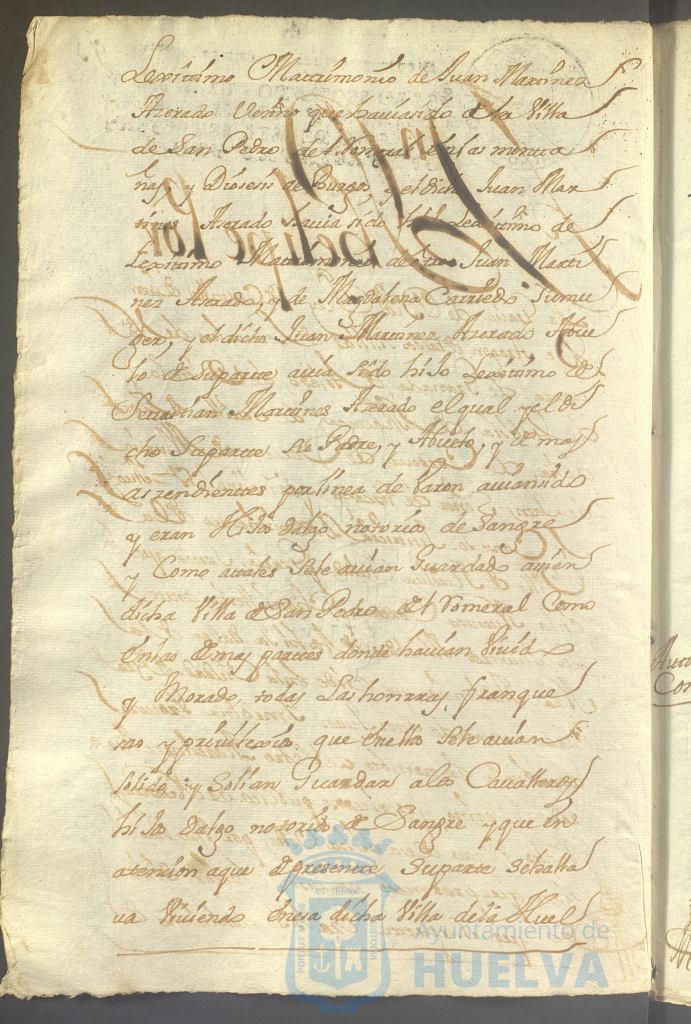 Lexitimo Matrimonio de Juan Martinez
Azerado Vezino que havia sido de la Villa
de San Pedro del Romeral en las monta
ñas, y Diosesis de Burgos y el dicho Juan Mar
tines Azerado havia sido hijo Lexitimo de
Lexitimo Matrimonio de otro Juan Marti
nez Azerado, y de Magdalena Carriedo su mu
ger, y el dicho Juan Martinez Azerado Abue
lo de su parte avia sido hijo Lexitimo de
Sevastian Martines Azerado el qual y el di
cho su parte su Padre, y Abuelo, y demas
aszendientes por linea de Varon avian sido
y eran Hijos dalgo notorios de Sangre
y Como a tales se le avian Guardado assi en
dicha Villa de San Pedro del Romeral Como
en las demas partes donde havian Vivido
y Morado, todas Las honrras, franque
sas y privilexios que en ella se le avian
solido y Solian Guardar a los Cavalleros
hijos dalgo notorios de Sangre y que en
atenzion a que de presente su parte se halla
va Viviendo en esa dicha Villa de la Huel
Ayuntamiento de
HUELVA